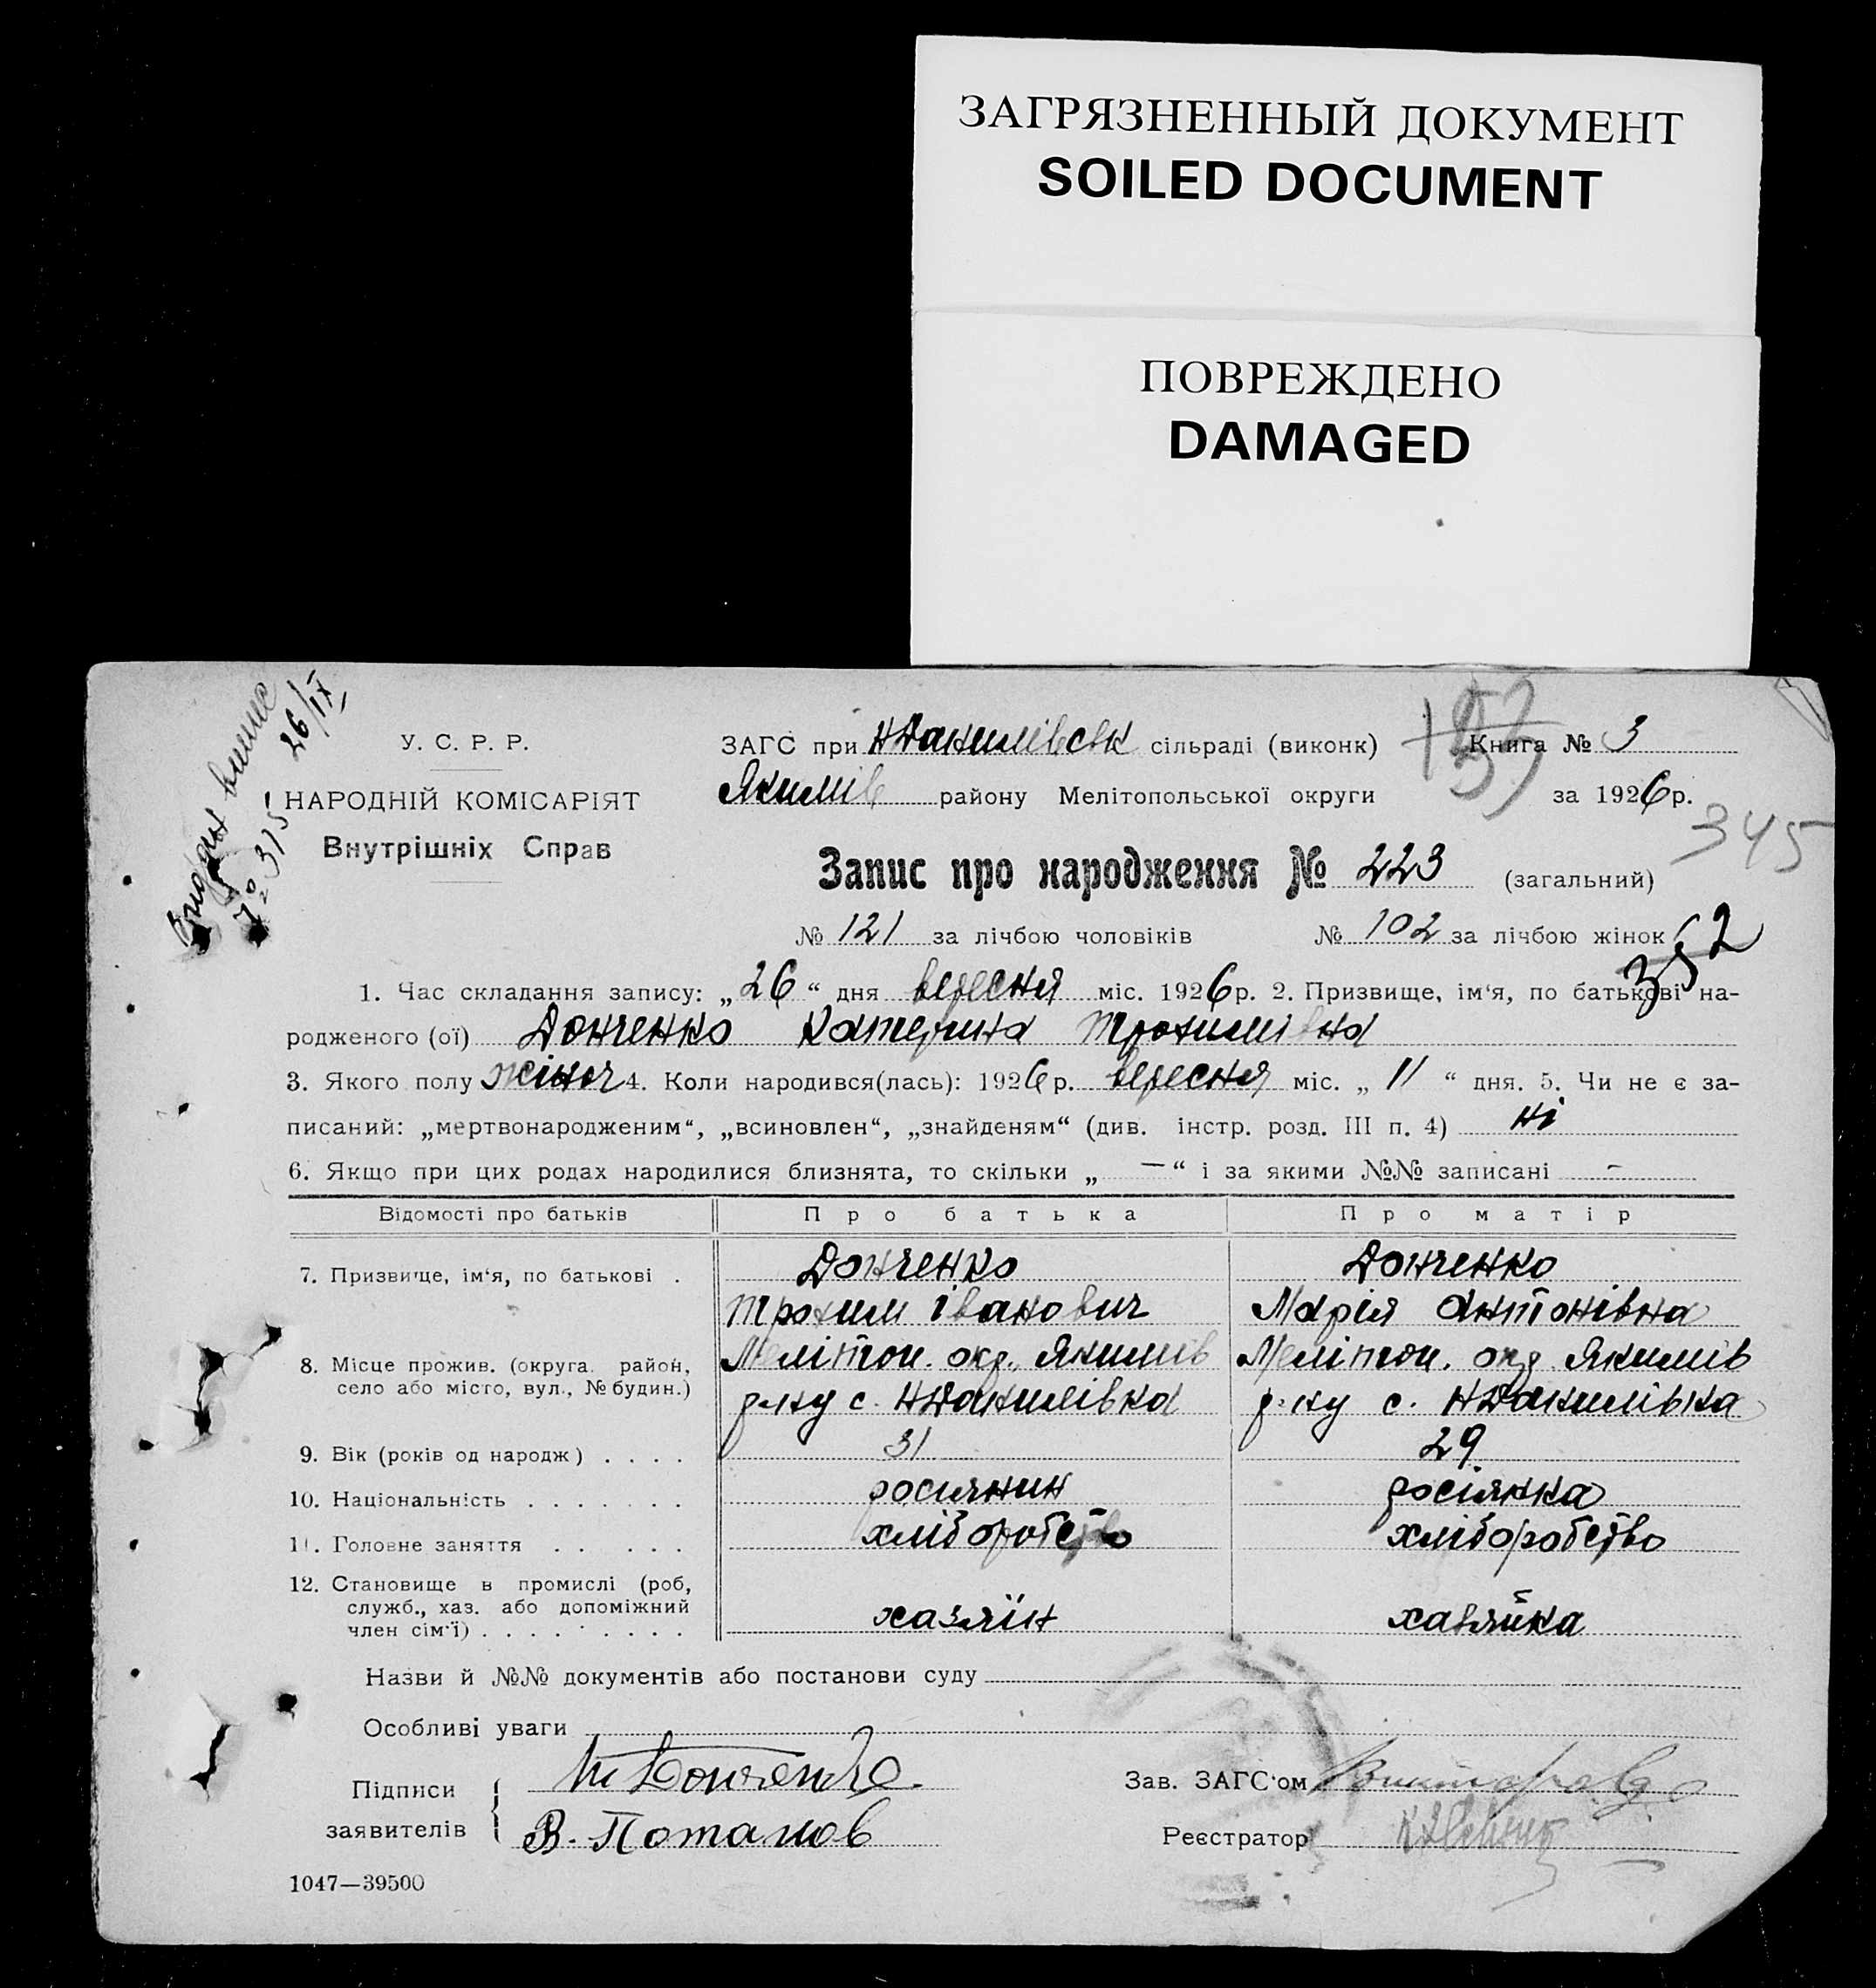 ЗАГРЯЗНЕННЫЙ ДОКУМЕНТ
SOILED DOCUMENT
ПОВРЕЖДЕНО
DAMAGED
26/IX
№ 315
У. С. Р. Р.
НАРОДНІЙ КОМІСАРІЯТ
Внутрішніх Справ
ЗАГС при НДанилівськ сільраді (виконк) Книга № 3
Якимів району Мелітопольської округи за 1926 р.
345
Запис про народження № 223 (загальний)
№ 121 за лічбою чоловіків № 102 за лічбою жінок
352
1. Час складання запису: „26“ дня вересня міс. 1926 р. 2. Призвище, ім'я, по батькові на-
родженого (ої) Донченко Катерина Трохимівна
3. Якого полу жіноч 4. Коли народився(лась): 1926 р. вересня міс. „11“ дня. 5. Чи не є за-
писаний: „мертвонародженим“, „всиновлен“, „знайденям“ (див. інстр. розд. III п. 4) ні
6. Якщо при цих родах народилися близнята, то скільки „—“ і за якими №№ записані —
Відомості про батьків Про батька Про матір
7. Призвище, ім'я, по батькові . Донченко Донченко
Трохим Іванович Марія Антонівна
8. Місце прожив. (округа район, Меліпон. окр. Якимів Меліпон. окр Якимів
село або місто, вул., № будин.) р-ну с. НДанилівка р-ну с. НДанилівка
9. Вік (років од народж) . . . . 31 29
10. Національність . . . . . . . росіянин росіянка
11. Головне заняття . . . . . . хліборобство хліборобство
12. Становище в промислі (роб,
служб., хаз. або допоміжний
член сім'ї) . . . . . . . . . хазяїн хазяйка
Назви й №№ документів або постанови суду
Особливі уваги
Підписи Т Донченко
заявителів В. Потапов
Зав. ЗАГС'ом
Реєстратор
1047—39500